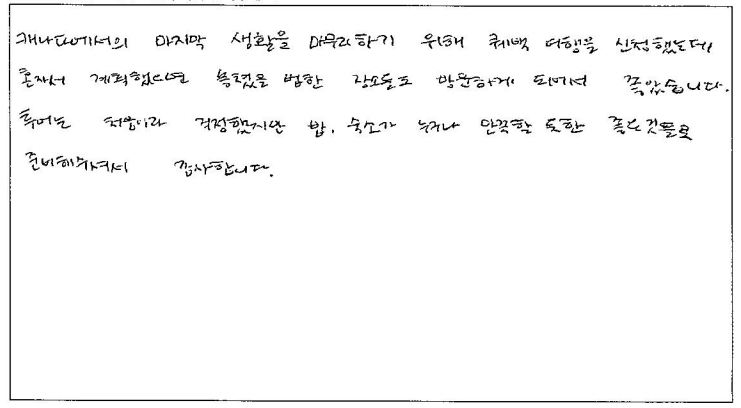 캐나다에서의 마지막 생활을 마무리하기 위해 퀘백 여행을 신청했는데
혼자서 계획했으면 놓쳤을 법한 장소들도 방문하게 되어서 좋았습니다.
투어는 처음이라 걱정했지만 밥, 숙소가 누구나 만족할 듯한 좋은것들로
준비해주셔서 감사합니다.